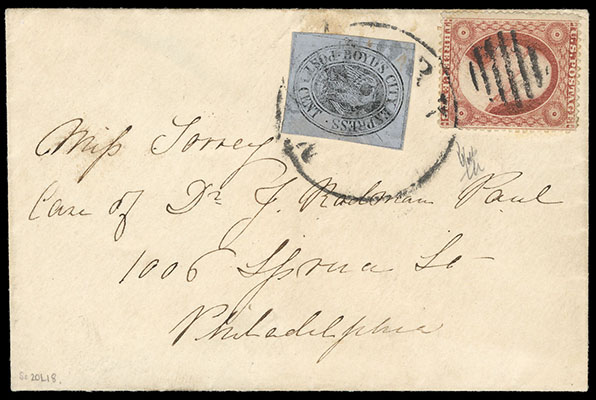 BOYD'S CITY EXPRESS. POST
U.S. POSTAGE
Miss Torrey
Care of Dr. J. Rodman Paul
1006 Spruce St
Philadelphia
Sc 20L18.